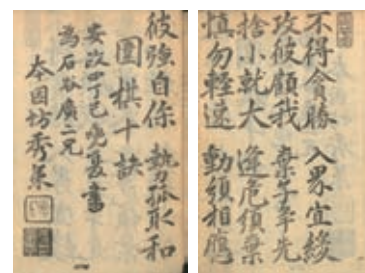 不得貪勝　入界宜緩
攻彼顧我　棄子爭先
捨小就大　逢危須棄
慎勿輕速　動須相應
彼強自保　勢孤取和
圍棋十訣
安政四丁巳晩夏書
為石谷廣二兄
本因坊秀策